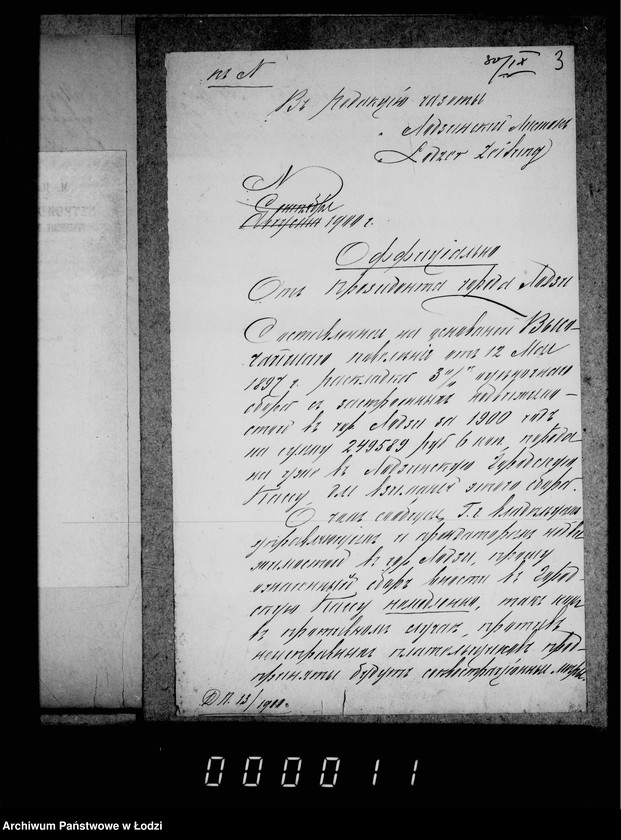 къ N
30/IX 3
Въ Редакцiю газеты
Лодзинскiй Листокъ
Lodzer Zeitung
N
Сентября
Августа 1900 г.
Оффицiально
Отъ Президента города Лодзи
Составленная на основанiи Высо-
чайшаго повелѣнiя отъ 12 Мая
1897 г. раскладка 3%
сбора съ застроенныхъ недвижимо-
стей въ гор. Лодзи за 1900 годъ
на сумму 249589 руб 6 коп, передана
уже въ Лодзинскую Городскую
Кассу для взиманiя этого сбора.
О чемъ сообщая Г.г. владѣльцамъ
управляющимъ и арендаторамъ недви-
жимостей въ гор. Лодзи, прошу
означенный сборъ внести въ Город-
скую Кассу немедленно, такъ какъ
въ противномъ случаѣ, противъ
неисправныхъ плательщиковъ пред-
приняты будутъ секвестрацiонныя мѣры.
Д П. 13/1900.
000011
Archiwum Państwowe w Łodzi